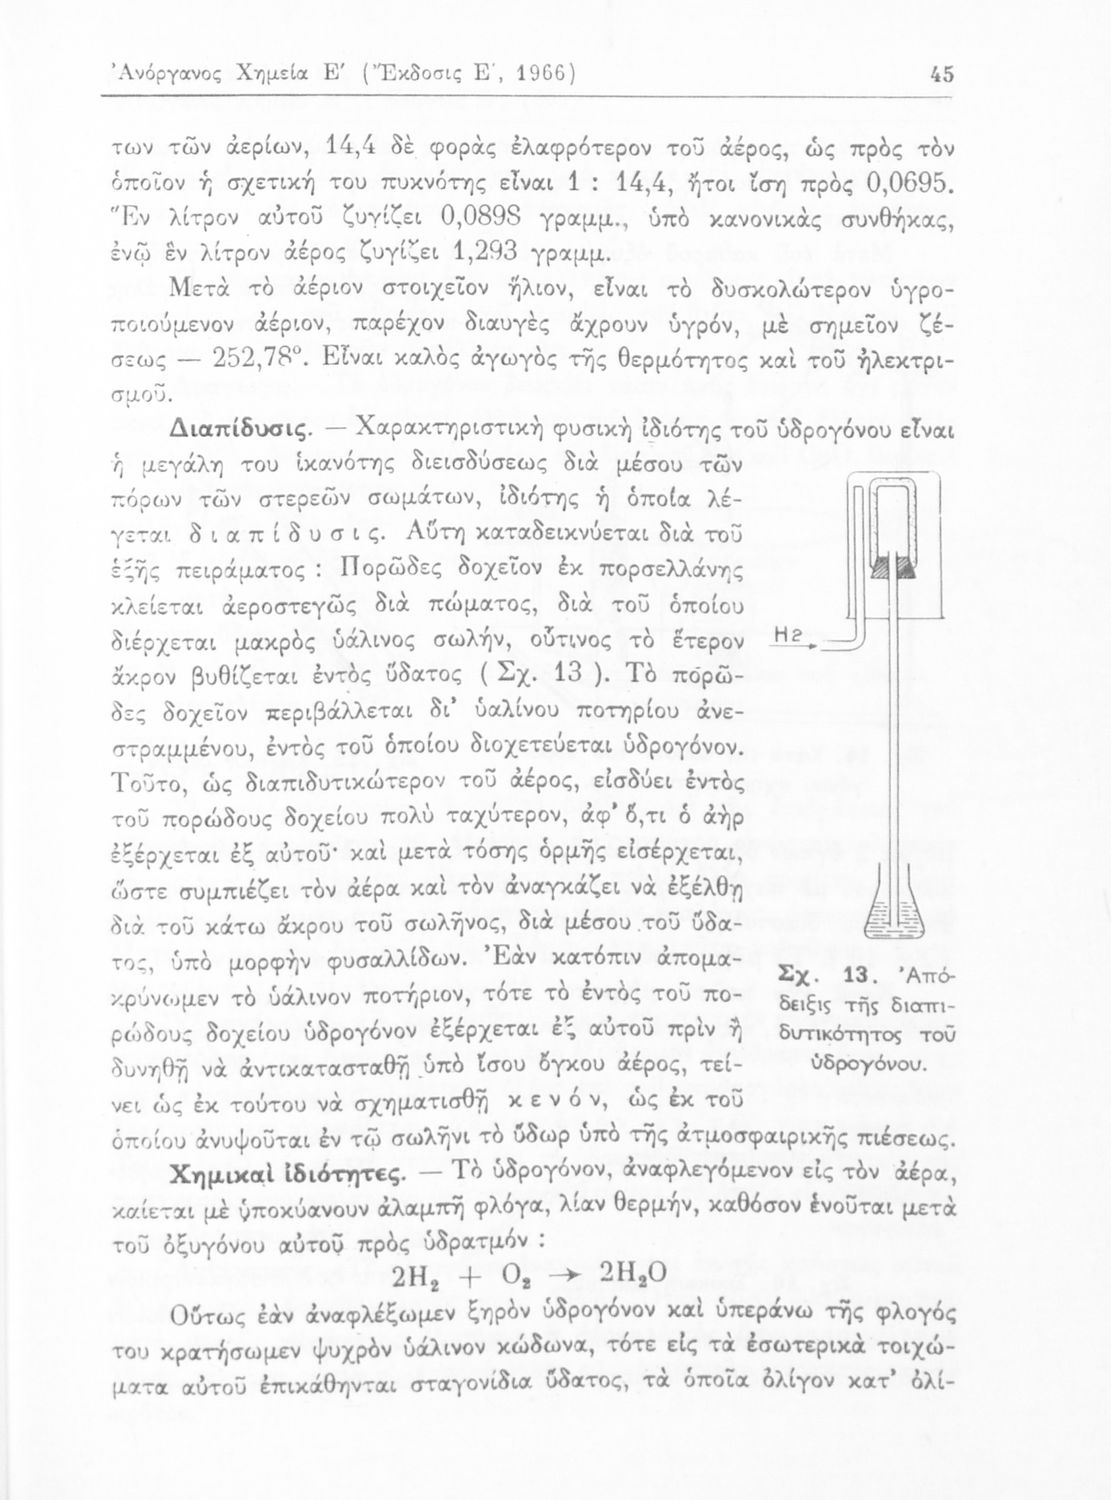 Ἀνόργανος Χημεία Ε′ (Ἔκδοσις Ε′, 1966) 45
των τῶν ἀερίων, 14,4 δὲ φορὰς ἐλαφρότερον τοῦ ἀέρος, ὡς πρὸς τὸν
ὁποῖον ἡ σχετική του πυκνότης εἶναι 1 : 14,4, ἤτοι ἴση πρὸς 0,0695.
Ἓν λίτρον αὐτοῦ ζυγίζει 0,0898 γραμμ., ὑπὸ κανονικὰς συνθήκας,
ἐνῷ ἓν λίτρον ἀέρος ζυγίζει 1,293 γραμμ.
Μετὰ τὸ ἀέριον στοιχεῖον ἥλιον, εἶναι τὸ δυσκολώτερον ὑγρο-
ποιούμενον ἀέριον, παρέχον διαυγὲς ἄχρουν ὑγρόν, μὲ σημεῖον ζέ-
σεως — 252,78°. Εἶναι καλὸς ἀγωγὸς τῆς θερμότητος καὶ τοῦ ἠλεκτρι-
σμοῦ.
Διαπίδυσις. — Χαρακτηριστικὴ φυσικὴ ἰδιότης τοῦ ὑδρογόνου εἶναι
ἡ μεγάλη του ἱκανότης διεισδύσεως διὰ μέσου τῶν
πόρων τῶν στερεῶν σωμάτων, ἰδιότης ἡ ὁποία λέ-
γεται δ ι α π ί δ υ σ ι ς. Αὕτη καταδεικνύεται διὰ τοῦ
ἑξῆς πειράματος : Πορῶδες δοχεῖον ἐκ πορσελλάνης
κλείεται ἀεροστεγῶς διὰ πώματος, διὰ τοῦ ὁποίου
διέρχεται μακρὸς ὑάλινος σωλήν, οὗτινος τὸ ἕτερον
ἄκρον βυθίζεται ἐντὸς ὕδατος ( Σχ. 13 ). Τὸ πορῶ-
δες δοχεῖον περιβάλλεται δι' ὑαλίνου ποτηρίου ἀνε-
στραμμένου, ἐντὸς τοῦ ὁποίου διοχετεύεται ὑδρογόνον.
Τοῦτο, ὡς διαπιδυτικώτερον τοῦ ἀέρος, εἰσδύει ἐντὸς
τοῦ πορώδους δοχείου πολὺ ταχύτερον, ἀφ' ὅ,τι ὁ ἀὴρ
ἐξέρχεται ἐξ αὐτοῦ· καὶ μετὰ τόσης ὁρμῆς εἰσέρχεται,
ὥστε συμπιέζει τὸν ἀέρα καὶ τὸν ἀναγκάζει νὰ ἐξέλθῃ
διὰ τοῦ κάτω ἄκρου τοῦ σωλῆνος, διὰ μέσου τοῦ ὕδα-
τος, ὑπὸ μορφὴν φυσαλλίδων. Ἐὰν κατόπιν ἀπομα-
κρύνωμεν τὸ ὑάλινον ποτήριον, τότε τὸ ἐντὸς τοῦ πο-
ρώδους δοχείου ὑδρογόνον ἐξέρχεται ἐξ αὐτοῦ πρὶν ἢ
δυνηθῇ νὰ ἀντικατασταθῇ ὑπὸ ἴσου ὄγκου ἀέρος, τεί-
νει ὡς ἐκ τούτου νὰ σχηματισθῇ κ ε ν ό ν, ὡς ἐκ τοῦ
ὁποίου ἀνυψοῦται ἐν τῷ σωλῆνι τὸ ὕδωρ ὑπὸ τῆς ἀτμοσφαιρικῆς πιέσεως.
H2
Σχ. 13. Ἀπό-
δειξις τῆς διαπι-
δυτικότητος τοῦ
ὑδρογόνου.
Χημικαὶ ἰδιότητες. — Τὸ ὑδρογόνον, ἀναφλεγόμενον εἰς τὸν ἀέρα,
καίεται μὲ ὑποκύανουν ἀλαμπῆ φλόγα, λίαν θερμήν, καθόσον ἑνοῦται μετὰ
τοῦ ὀξυγόνου αὐτοῦ πρὸς ὑδρατμόν :
2H₂ + O₂ → 2H₂O
Οὕτως ἐὰν ἀναφλέξωμεν ξηρὸν ὑδρογόνον καὶ ὑπεράνω τῆς φλογός
του κρατήσωμεν ψυχρὸν ὑάλινον κώδωνα, τότε εἰς τὰ ἐσωτερικὰ τοιχώ-
ματα αὐτοῦ ἐπικάθηνται σταγονίδια ὕδατος, τὰ ὁποῖα ὀλίγον κατ' ὀλί-